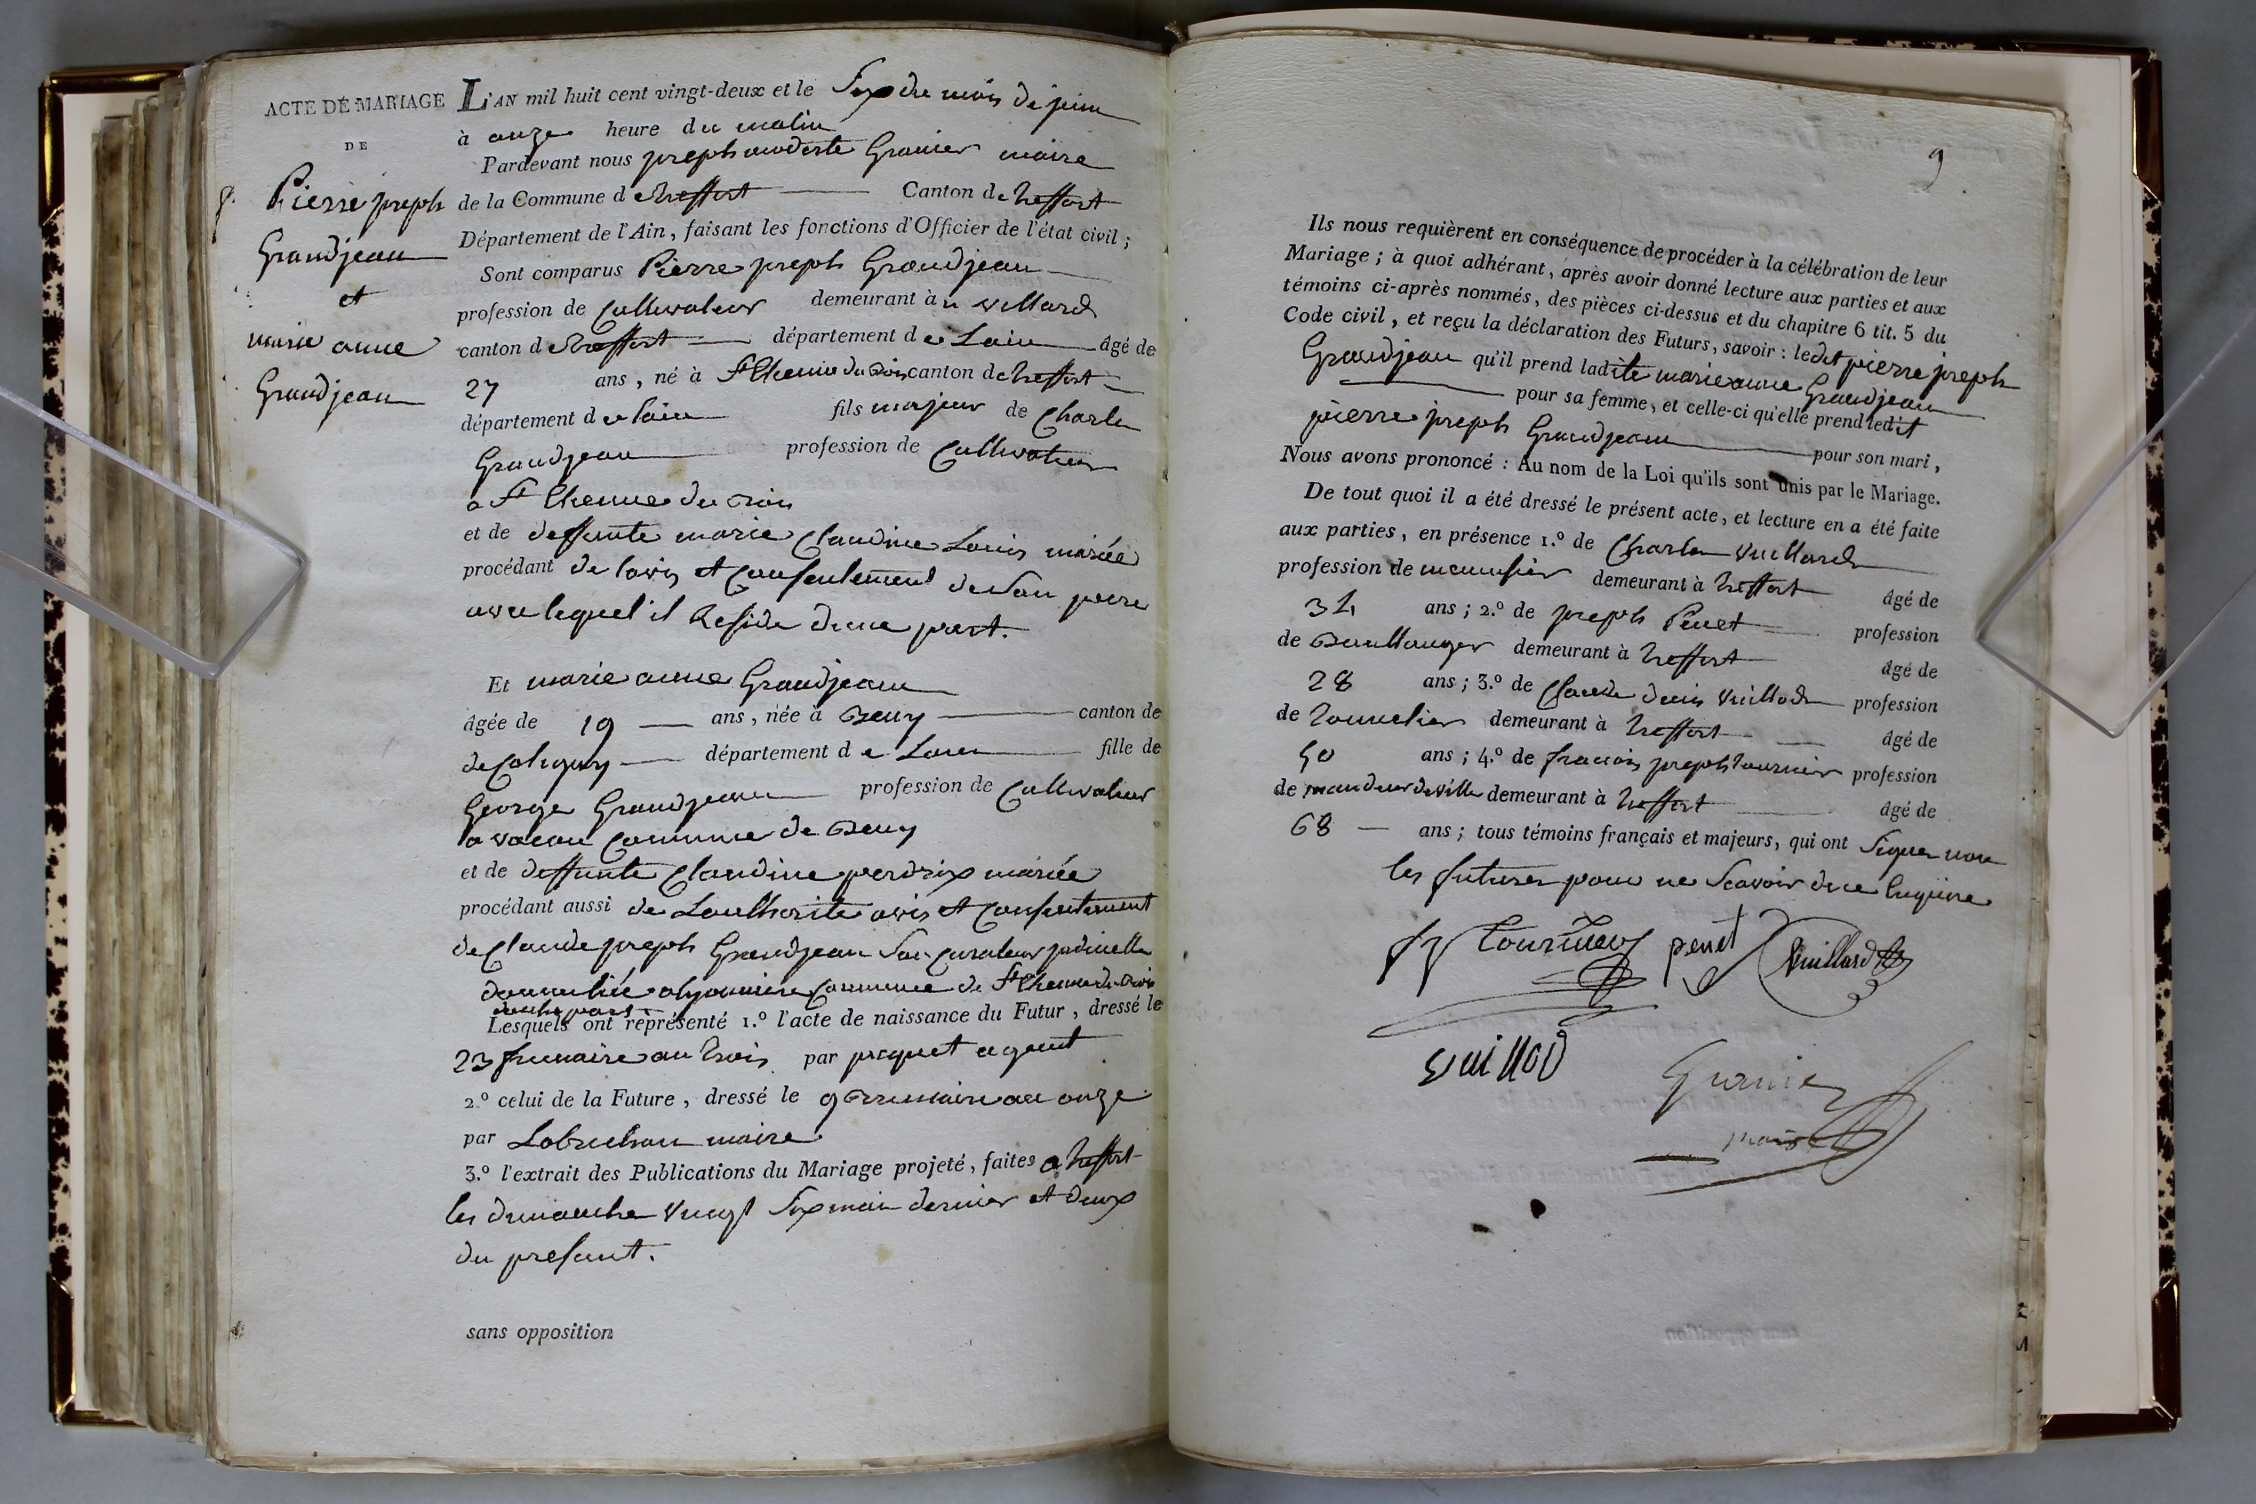 ACTE DE MARIAGE
DE
8.
Pierre joseph
Grandjean
et
marie anne
Grandjean
L'AN mil huit cent vingt-deux et le Six du mois de juin
à onze heure du matin
Pardevant nous joseph modeste Granier maire
de la Commune de treffort Canton de treffort
Département de l'Ain, faisant les fonctions d'Officier de l'état civil ;
Sont comparus Pierre joseph Grandjean
profession de Cultivateur demeurant à u villard
canton de treffort département de Lain âgé de
27 ans, né à St Etienne du Bois canton de treffort
département de lain fils majeur de Charle
Grandjean profession de Cultivateur
a St Etienne du Bois
et de deffunte marie Claudine Louis mariée
procédant de lavis et Consentement de Son pere
avec lequel il Reside dune part.
Et marie anne Grandjean
âgée de 19 ans, née à Beny canton de
de Coligny département de Lain fille de
George Grandjean profession de Cultivateur
a Commune de Beny
et de deffunte Claudine perdrix mariée
procédant aussi de Lauthorité avis et Consentement
de Claude joseph Grandjean Son Curateur
domicilié Commune de St Etienne du Bois
dautre part
Lesquels ont représenté 1.º l'acte de naissance du Futur, dressé le
23 frimaire an trois par agent
2.º celui de la Future, dressé le 9 Brumaire an onze
par maire
3.º l'extrait des Publications du Mariage projeté, faites a treffort
les dimanche vingt Six mai dernier et deux
du present.
sans opposition
9
Ils nous requièrent en conséquence de procéder à la célébration de leur
Mariage ; à quoi adhérant, après avoir donné lecture aux parties et aux
témoins ci-après nommés, des pièces ci-dessus et du chapitre 6 tit. 5 du
Code civil, et reçu la déclaration des Futurs, savoir : ledit pierre joseph
Grandjean qu'il prend ladite marie anne Grandjean
pour sa femme, et celle-ci qu'elle prend ledit
pierre joseph Grandjean pour son mari,
Nous avons prononcé : Au nom de la Loi qu'ils sont unis par le Mariage.
De tout quoi il a été dressé le présent acte, et lecture en a été faite
aux parties, en présence 1.º de Charle Vuillard
profession de menuisier demeurant à treffort âgé de
34 ans ; 2.º de joseph Penet profession
de Boullanger demeurant à treffort âgé de
28 ans ; 3.º de Claude denis Vuillod profession
de Tonnelier demeurant à treffort âgé de
50 ans ; 4.º de francois joseph tournier profession
de mandeur de ville demeurant à treffort âgé de
68 ans ; tous témoins français et majeurs, qui ont Signer non
les futures pour ne Scavoir de ce Enquire
fj tournier penet Vuillard
vuillod
Granier
maire